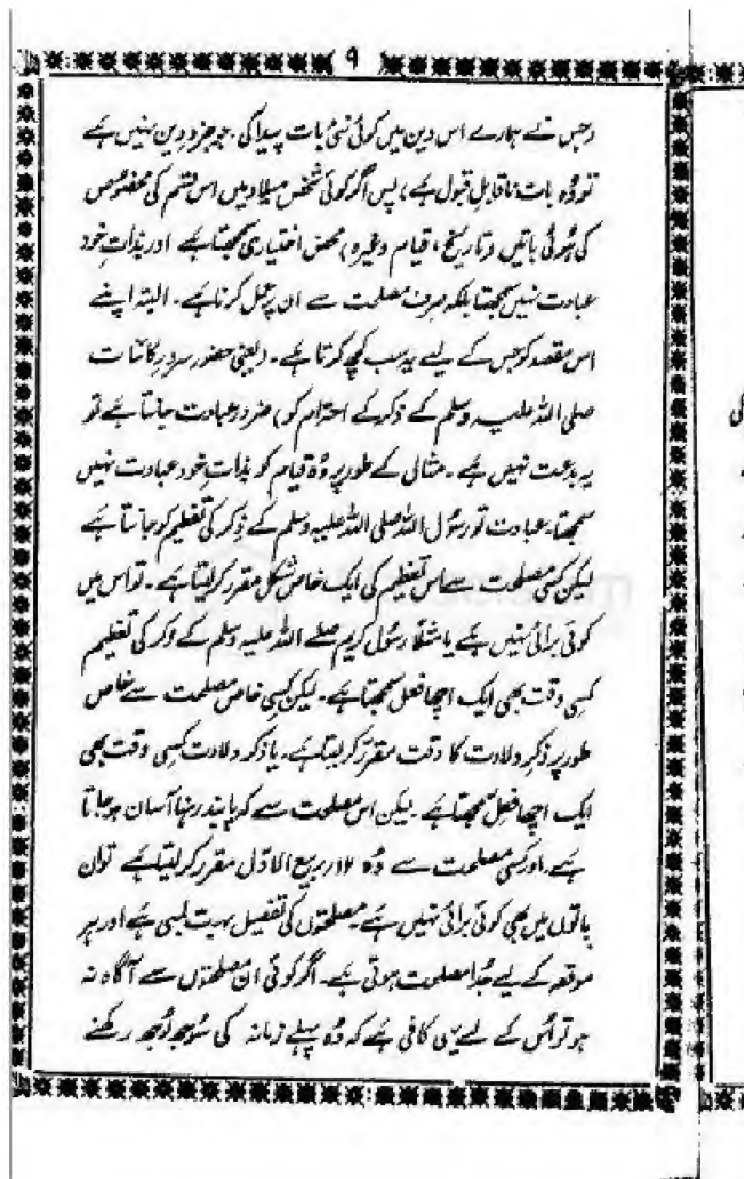 ۹
(جس نے ہمارے اس دین میں کوئی نئی بات پیدا کی۔ جو جزوِ دین نہیں ہے
تو وُہ بات ناقابلِ قبول ہے) پس اگر کوئی شخص میلاد میں اس قسم کی مخصوص
کی ہُوئی باتیں (تاریخ، قیام وغیرہ) محض اختیاری سمجھتا ہے اور بذاتِ خود
عبادت نہیں سمجھتا بلکہ صرف مصلحت سے ان پر عمل کرتا ہے۔ البتہ اپنے
اس مقصد کو جس کے لیے یہ سب کچھ کرتا ہے۔ (یعنی حضور سرورِ کائنات
صلی اللہ علیہ وسلم کے ذکر کے احترام کو) ضرور عبادت جانتا ہے تو
یہ بدعت نہیں ہے۔ مثال کے طور پر وُہ قیام کو بذاتِ خود عبادت نہیں
سمجھتا۔ عبادت تو رسُول اللہ صلی اللہ علیہ وسلم کے ذِکر کی تعظیم کو جانتا ہے
لیکن کسی مصلحت سے اس تعظیم کی ایک خاص شکل مقرر کر لیتا ہے۔ تو اس میں
کوئی برائی نہیں ہے یا مثلاً رسُول کریم صلے اللہ علیہ وسلم کے ذکر کی تعظیم
کسی وقت بھی ایک اچھا فعل سمجھتا ہے۔ لیکن کِسی خاص مصلحت سے خاص
طور پر ذکرِ ولادت کا وقت مقرر کر لیتا ہے۔ یا ذکر ولادت کسِی وقت بھی
ایک اچھا فعل سمجھتا ہے۔ لیکن اس مصلحت سے کہ پابند رہنا آسان ہو جاتا
ہے، اور کسی مصلحت سے وُہ ۱۲ ربیع الاوّل مقرر کر لیتا ہے توان
باتوں میں بھی کوئی برائی نہیں ہے۔ مصلحتوں کی تفصیل بہت لمبی ہے اور ہر
موقعہ کے لیے جُدا مصلحت ہوتی ہے۔ اگر کوئی ان مصلحتوں سے آگاہ نہ
ہو تو اُس کے لیے یہی کافی ہے کہ وُہ پہلے زمانہ کی سُوجھ بُوجھ رکھنے
کی